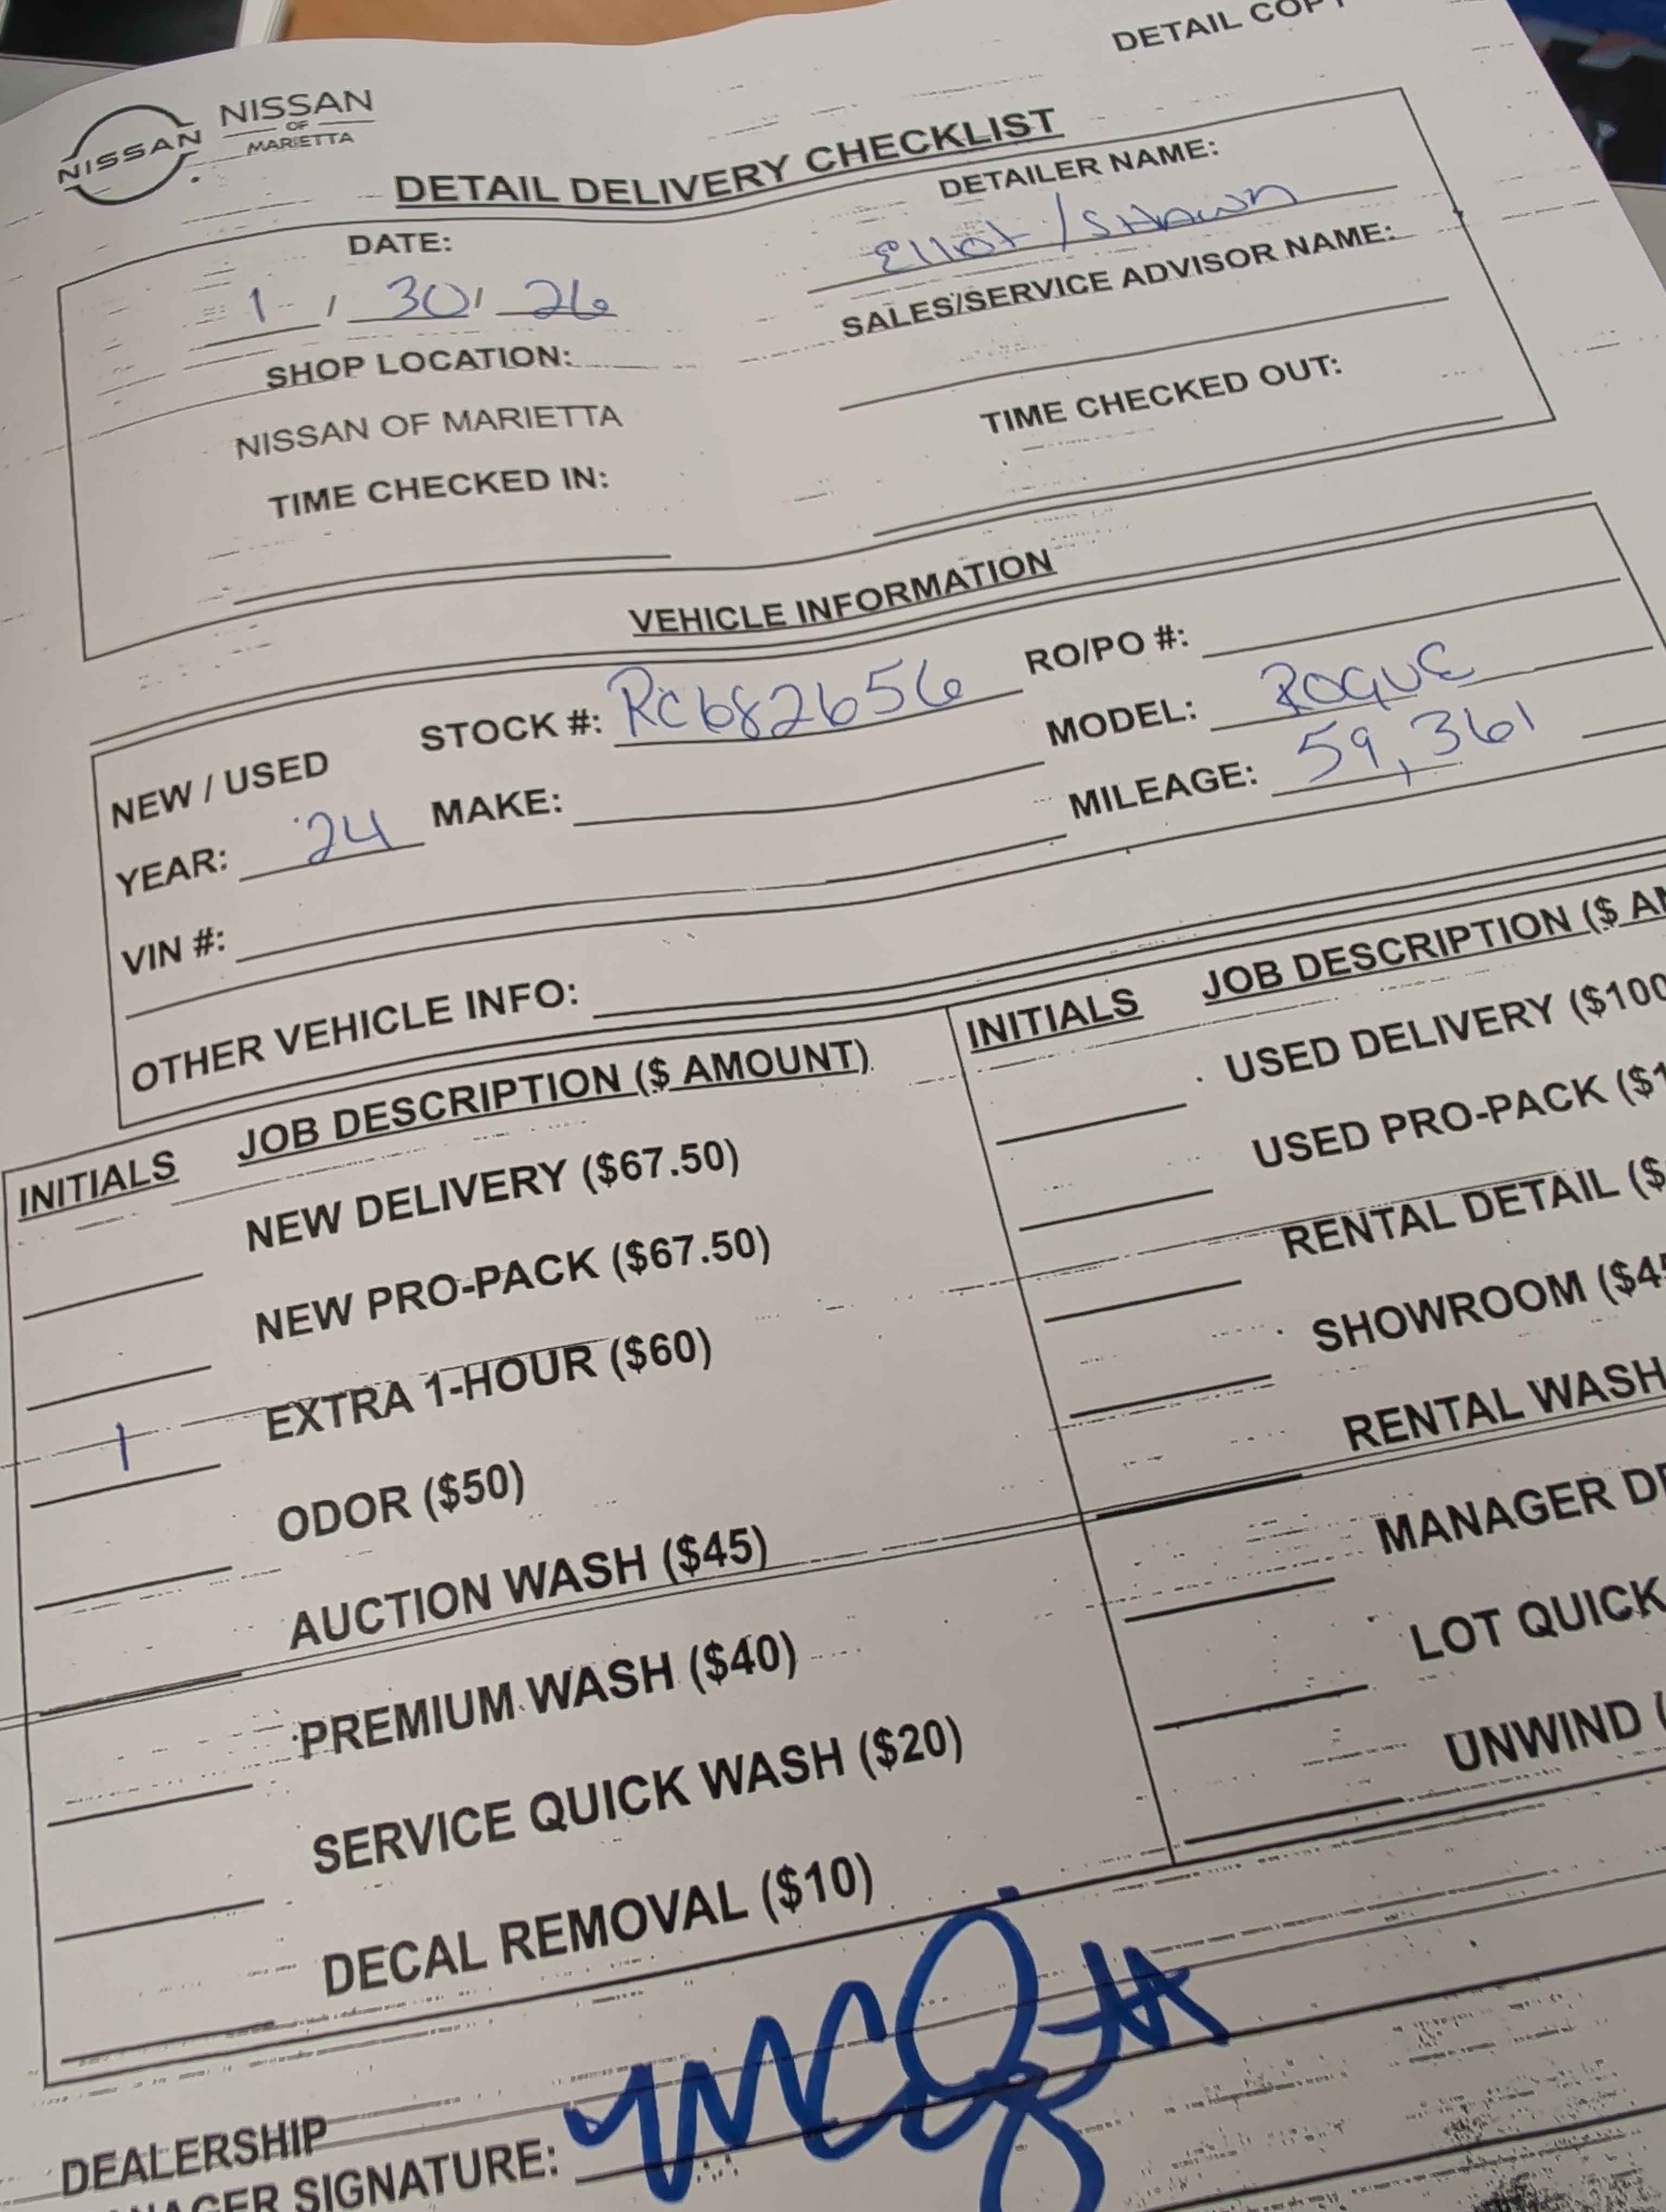 DETAIL COPY
NISSAN
NISSAN
OF
MARIETTA
DETAIL DELIVERY CHECKLIST
DATE:
1 / 30 / 26
DETAILER NAME:
Elliot / Shawn
SHOP LOCATION:
NISSAN OF MARIETTA
SALES/SERVICE ADVISOR NAME:
TIME CHECKED IN:
TIME CHECKED OUT:
VEHICLE INFORMATION
NEW / USED STOCK #: RC682656 RO/PO #:
YEAR: 24 MAKE: MODEL: ROGUE
VIN #: MILEAGE: 59,361
OTHER VEHICLE INFO:
INITIALS JOB DESCRIPTION ($ AMOUNT)
NEW DELIVERY ($67.50)
NEW PRO-PACK ($67.50)
1 EXTRA 1-HOUR ($60)
ODOR ($50)
AUCTION WASH ($45)
PREMIUM WASH ($40)
SERVICE QUICK WASH ($20)
DECAL REMOVAL ($10)
INITIALS JOB DESCRIPTION ($ AM
USED DELIVERY ($100
USED PRO-PACK ($1
RENTAL DETAIL ($
SHOWROOM ($45
RENTAL WASH
MANAGER DE
LOT QUICK
UNWIND (
DEALERSHIP
NAGER SIGNATURE: